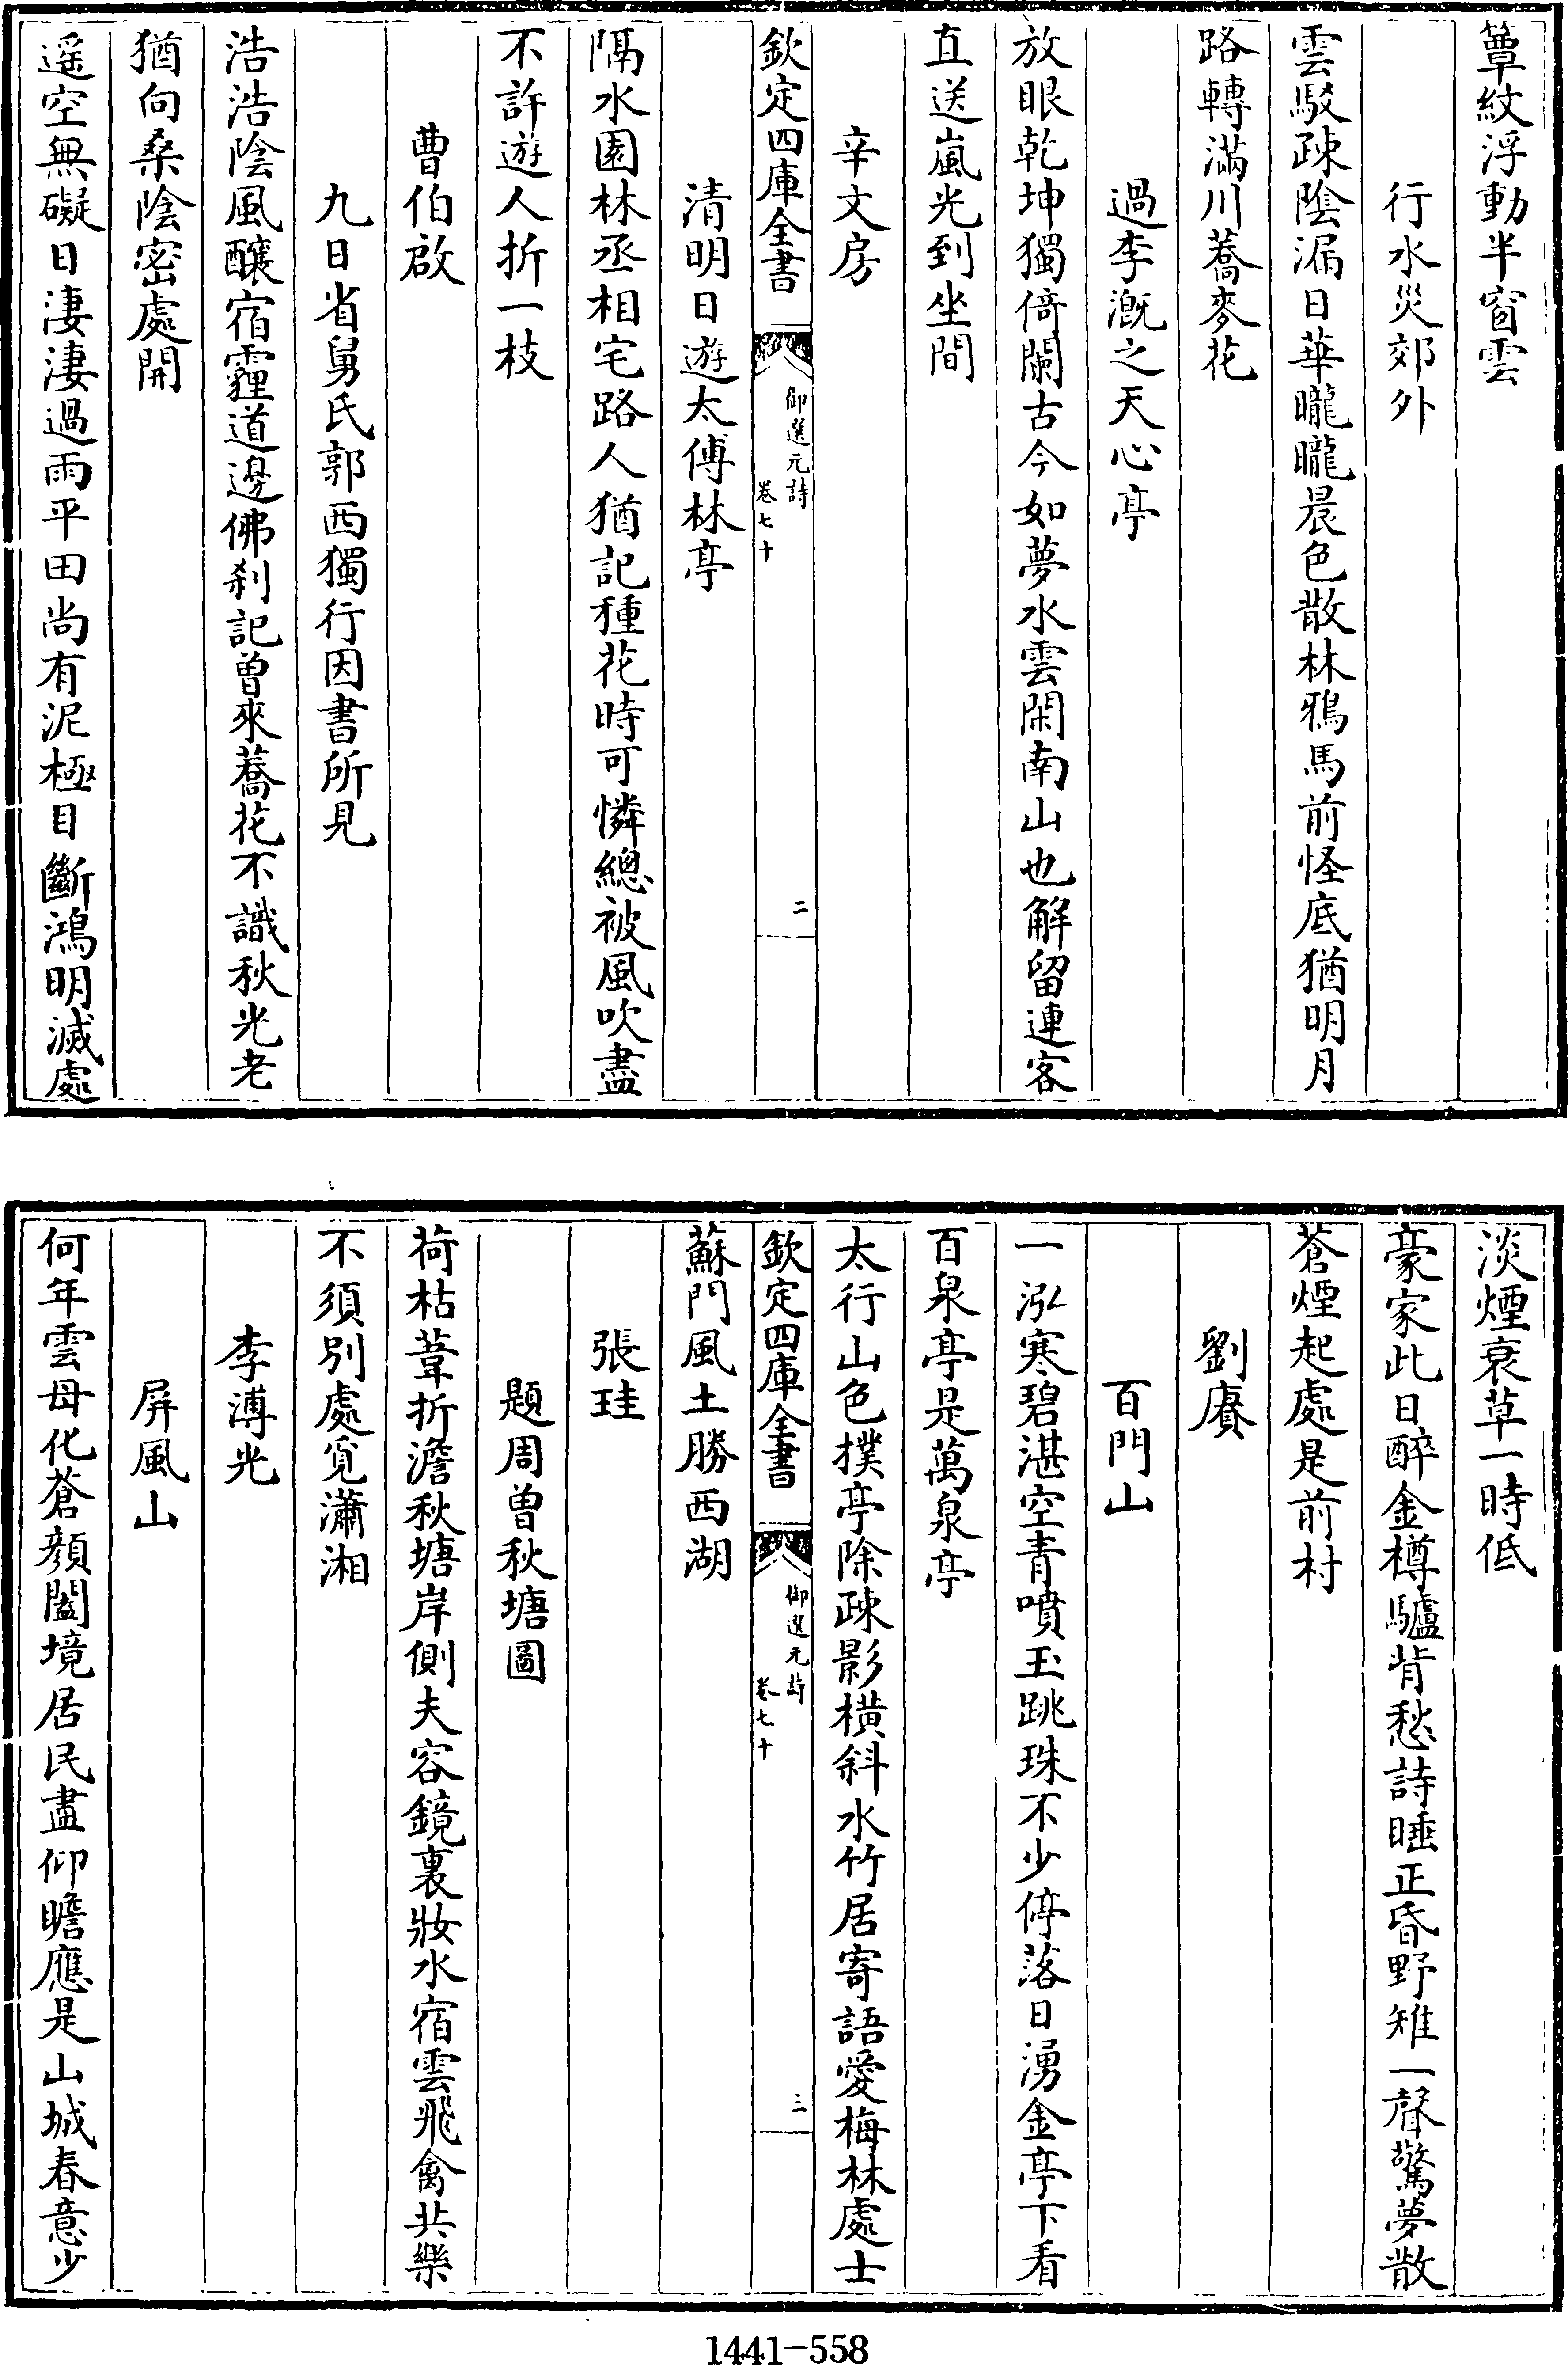 簟紋浮動半窗雲
行水災郊外
雲駁疎陰漏日華曨曨晨色散林鴉馬前怪底猶明月
路轉滿川蕎麥花
過李溉之天心亭
放眼乾坤獨倚闌古今如夢水雲閑南山也解留連客
直送嵐光到坐間
辛文房
欽定四庫全書
御選元詩
卷七十
二
清明日遊太傅林亭
隔水園林丞相宅路人猶記種花時可憐總被風吹盡
不許遊人折一枝
曹伯啟
九日省舅氏郭西獨行因書所見
浩浩陰風釀宿霾道邊佛剎記曽來蕎花不識秋光老
猶向桑陰密處開
遥空無礙日淒淒過雨平田尚有泥極目斷鴻明滅處
淡煙衰草一時低
豪家此日醉金樽驢背愁詩睡正昏野雉一聲驚夢散
蒼煙起處是前村
劉賡
百門山
一泓寒碧湛空青噴玉跳珠不少停落日湧金亭下看
百泉亭是萬泉亭
太行山色撲亭除疎影橫斜水竹居寄語愛梅林處士
欽定四庫全書
御選元詩
卷七十
三
蘇門風土勝西湖
張珪
題周曽秋塘圖
荷枯葦折澹秋塘岸側夫容鏡裏妝水宿雲飛禽共樂
不須別處覓瀟湘
李溥光
屏風山
何年雲母化蒼顔闔境居民盡仰瞻應是山城春意少
1441-558